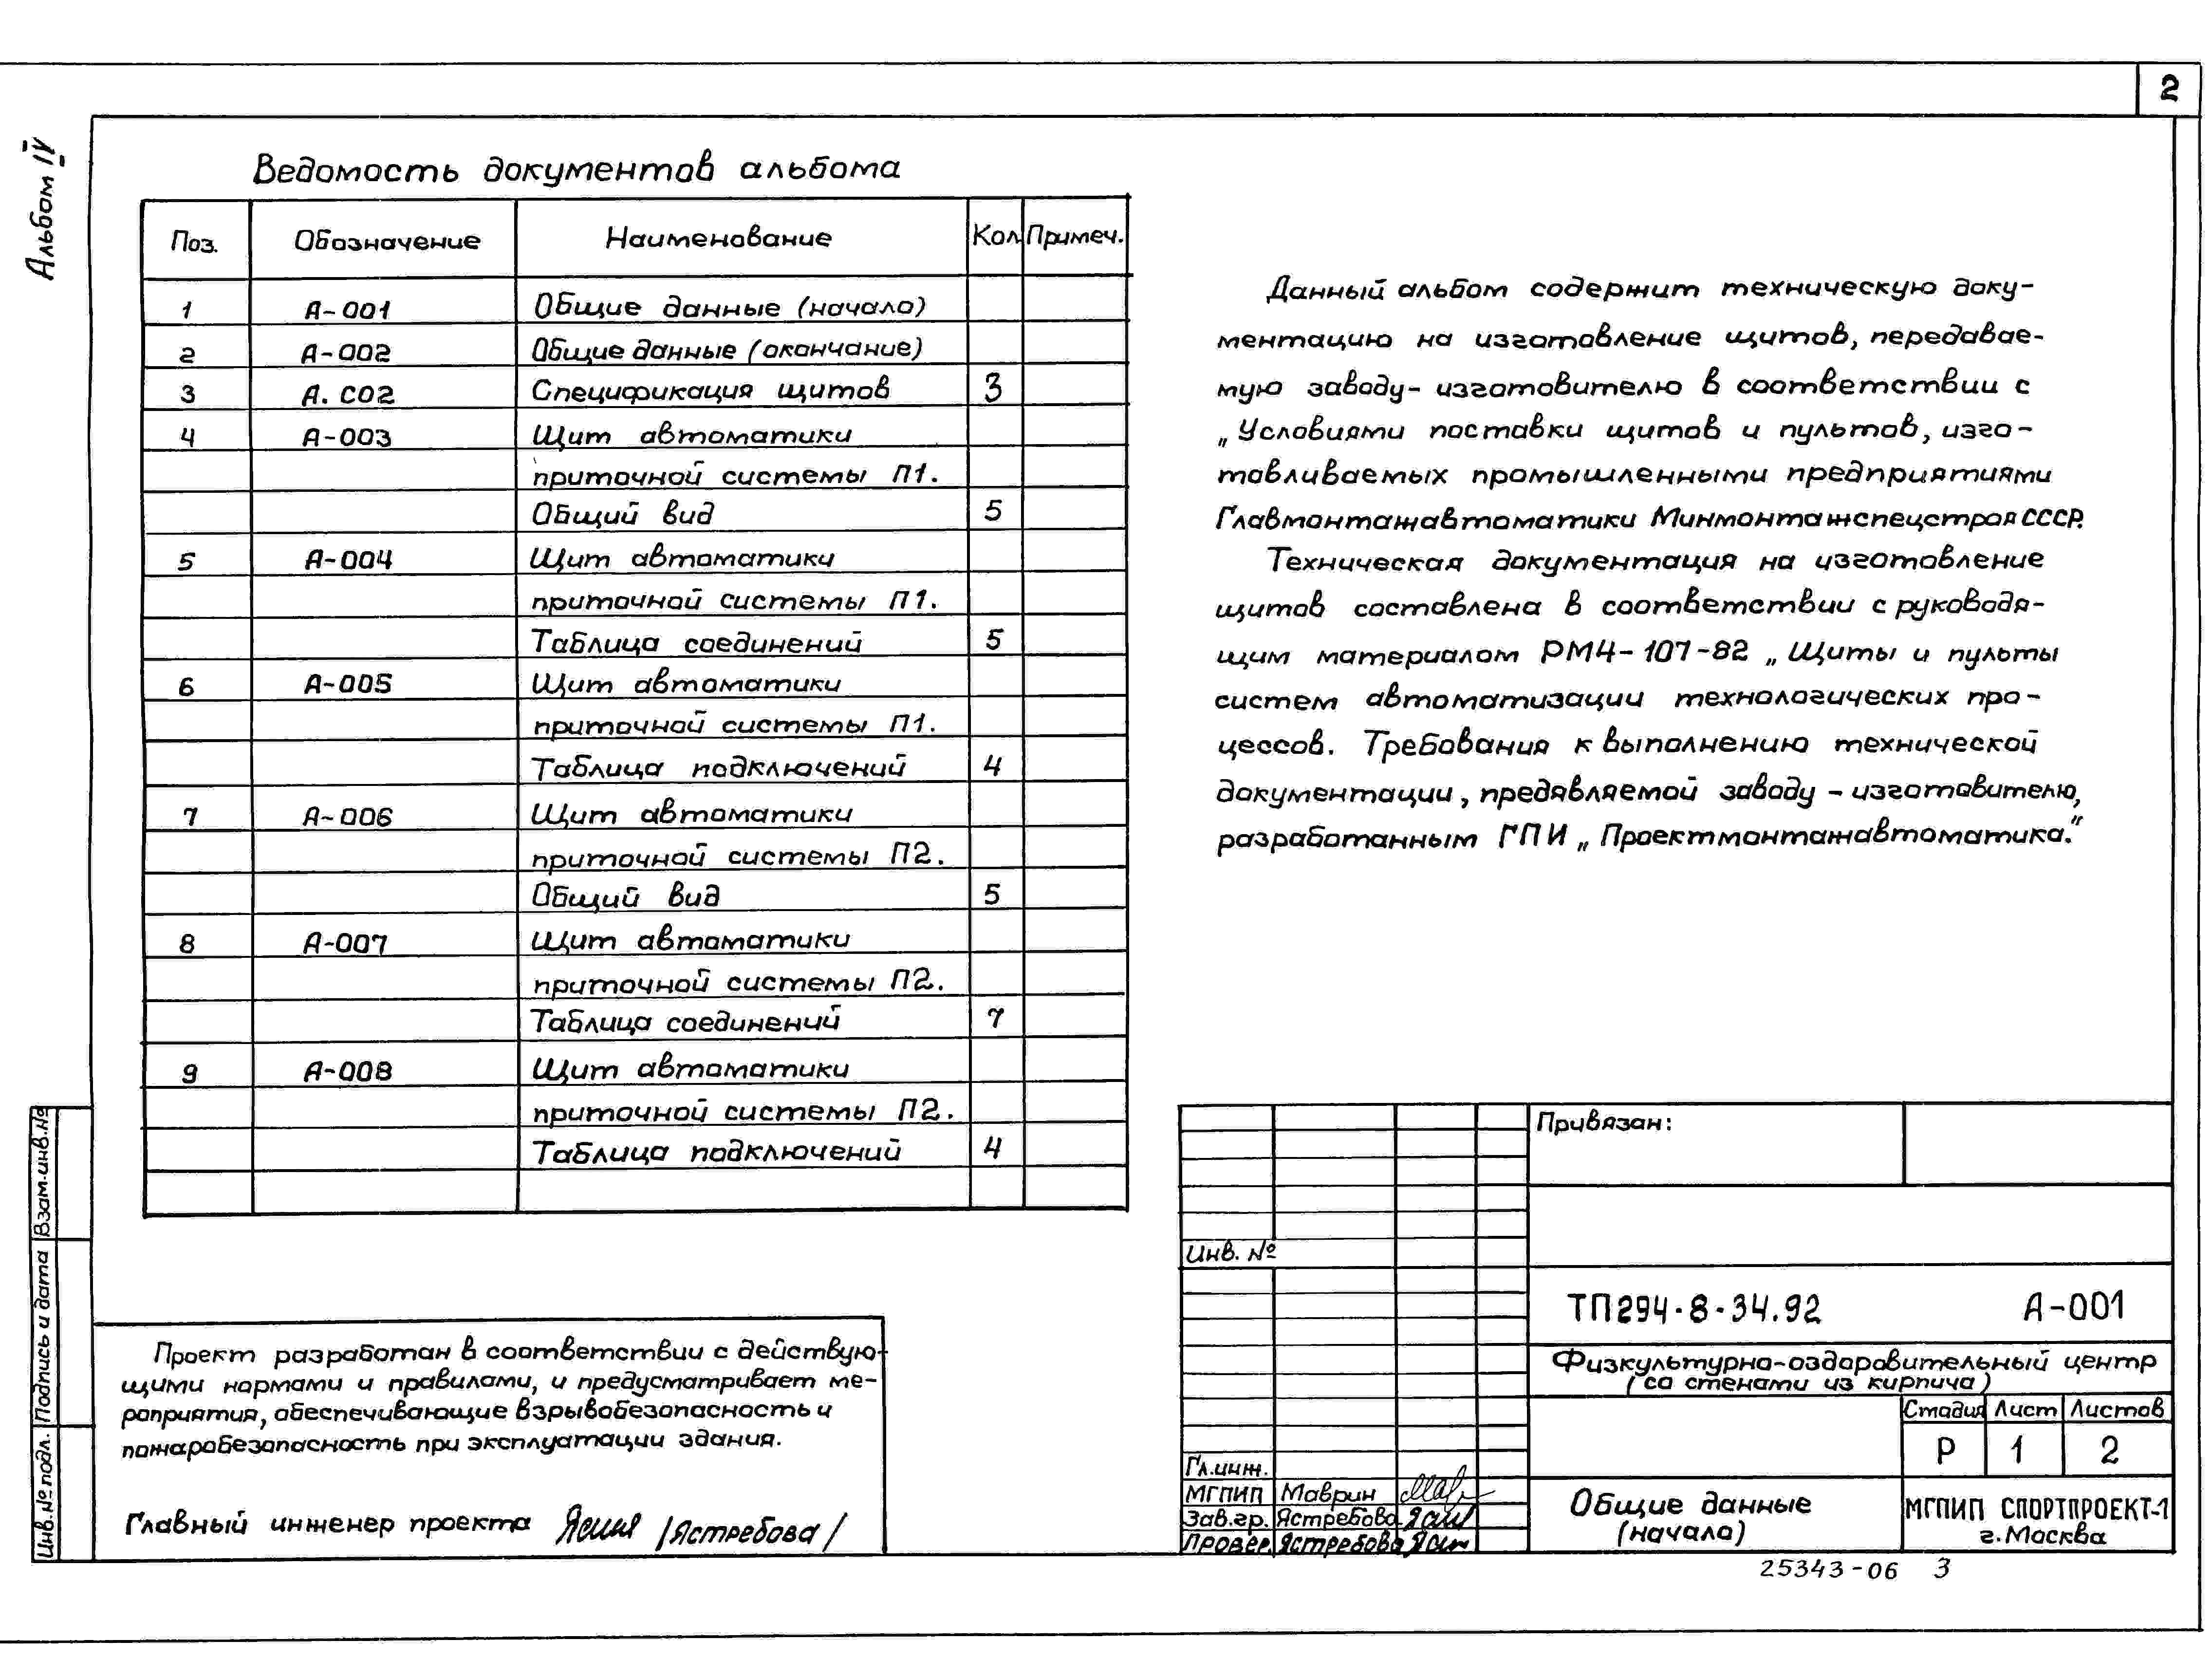 2
Альбом IV
Ведомость документов альбома
Поз. Обозначение Наименование Кол Примеч.
1 А-001 Общие данные (начало)
2 А-002 Общие данные (окончание)
3 А. С02 Спецификация щитов 3
4 А-003 Щит автоматики
приточной системы П1.
Общий вид 5
5 А-004 Щит автоматики
приточной системы П1.
Таблица соединений 5
6 А-005 Щит автоматики
приточной системы П1.
Таблица подключений 4
7 А-006 Щит автоматики
приточной системы П2.
Общий вид 5
8 А-007 Щит автоматики
приточной системы П2.
Таблица соединений 7
9 А-008 Щит автоматики
приточной системы П2.
Таблица подключений 4
Данный альбом содержит техническую доку-
ментацию на изготовление щитов, передавае-
мую заводу-изготовителю в соответствии с
„Условиями поставки щитов и пультов, изго-
тавливаемых промышленными предприятиями
Главмонтажавтоматики Минмонтажспецстроя СССР.
Техническая документация на изготовление
щитов составлена в соответствии с руководя-
щим материалом РМ4-107-82 „Щиты и пульты
систем автоматизации технологических про-
цессов. Требования к выполнению технической
документации, предявляемой заводу-изготовителю,
разработанным ГПИ „Проектмонтажавтоматика."
Проект разработан в соответствии с действую-
щими нормами и правилами, и предусматривает ме-
роприятия, обеспечивающие взрывобезопасность и
пожаробезопасность при эксплуатации здания.
Главный инженер проекта /Ястребова/
Взам.инв.№
Подпись и дата
Инв.№ подл.
Привязан:
Инв. №
ТП294-8-34.92 А-001
Физкультурно-оздоровительный центр
(со стенами из кирпича)
Стадия Лист Листов
Р 1 2
Гл.инж.
МГПИП Маврин
Зав.гр. Ястребова
Провер. Ястребова
Общие данные
(начало)
МГПИП СПОРТПРОЕКТ-1
г.Москва
25343-06 3